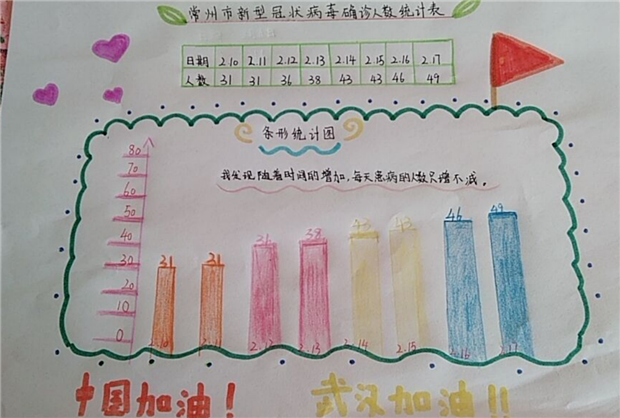 常州市新型冠状病毒确诊人数统计表
日期 2.10 2.11 2.12 2.13 2.14 2.15 2.16 2.17
人数 31 31 36 38 43 43 46 49
条形统计图
我发现随着时间的增加,每天患病的人数只增不减。
80
70
60
50
40
30
20
10
0
31 31 36 38 43 43 46 49
2.10 2.11 2.12 2.13 2.14 2.15 2.16 2.17
中国加油!
武汉加油!!